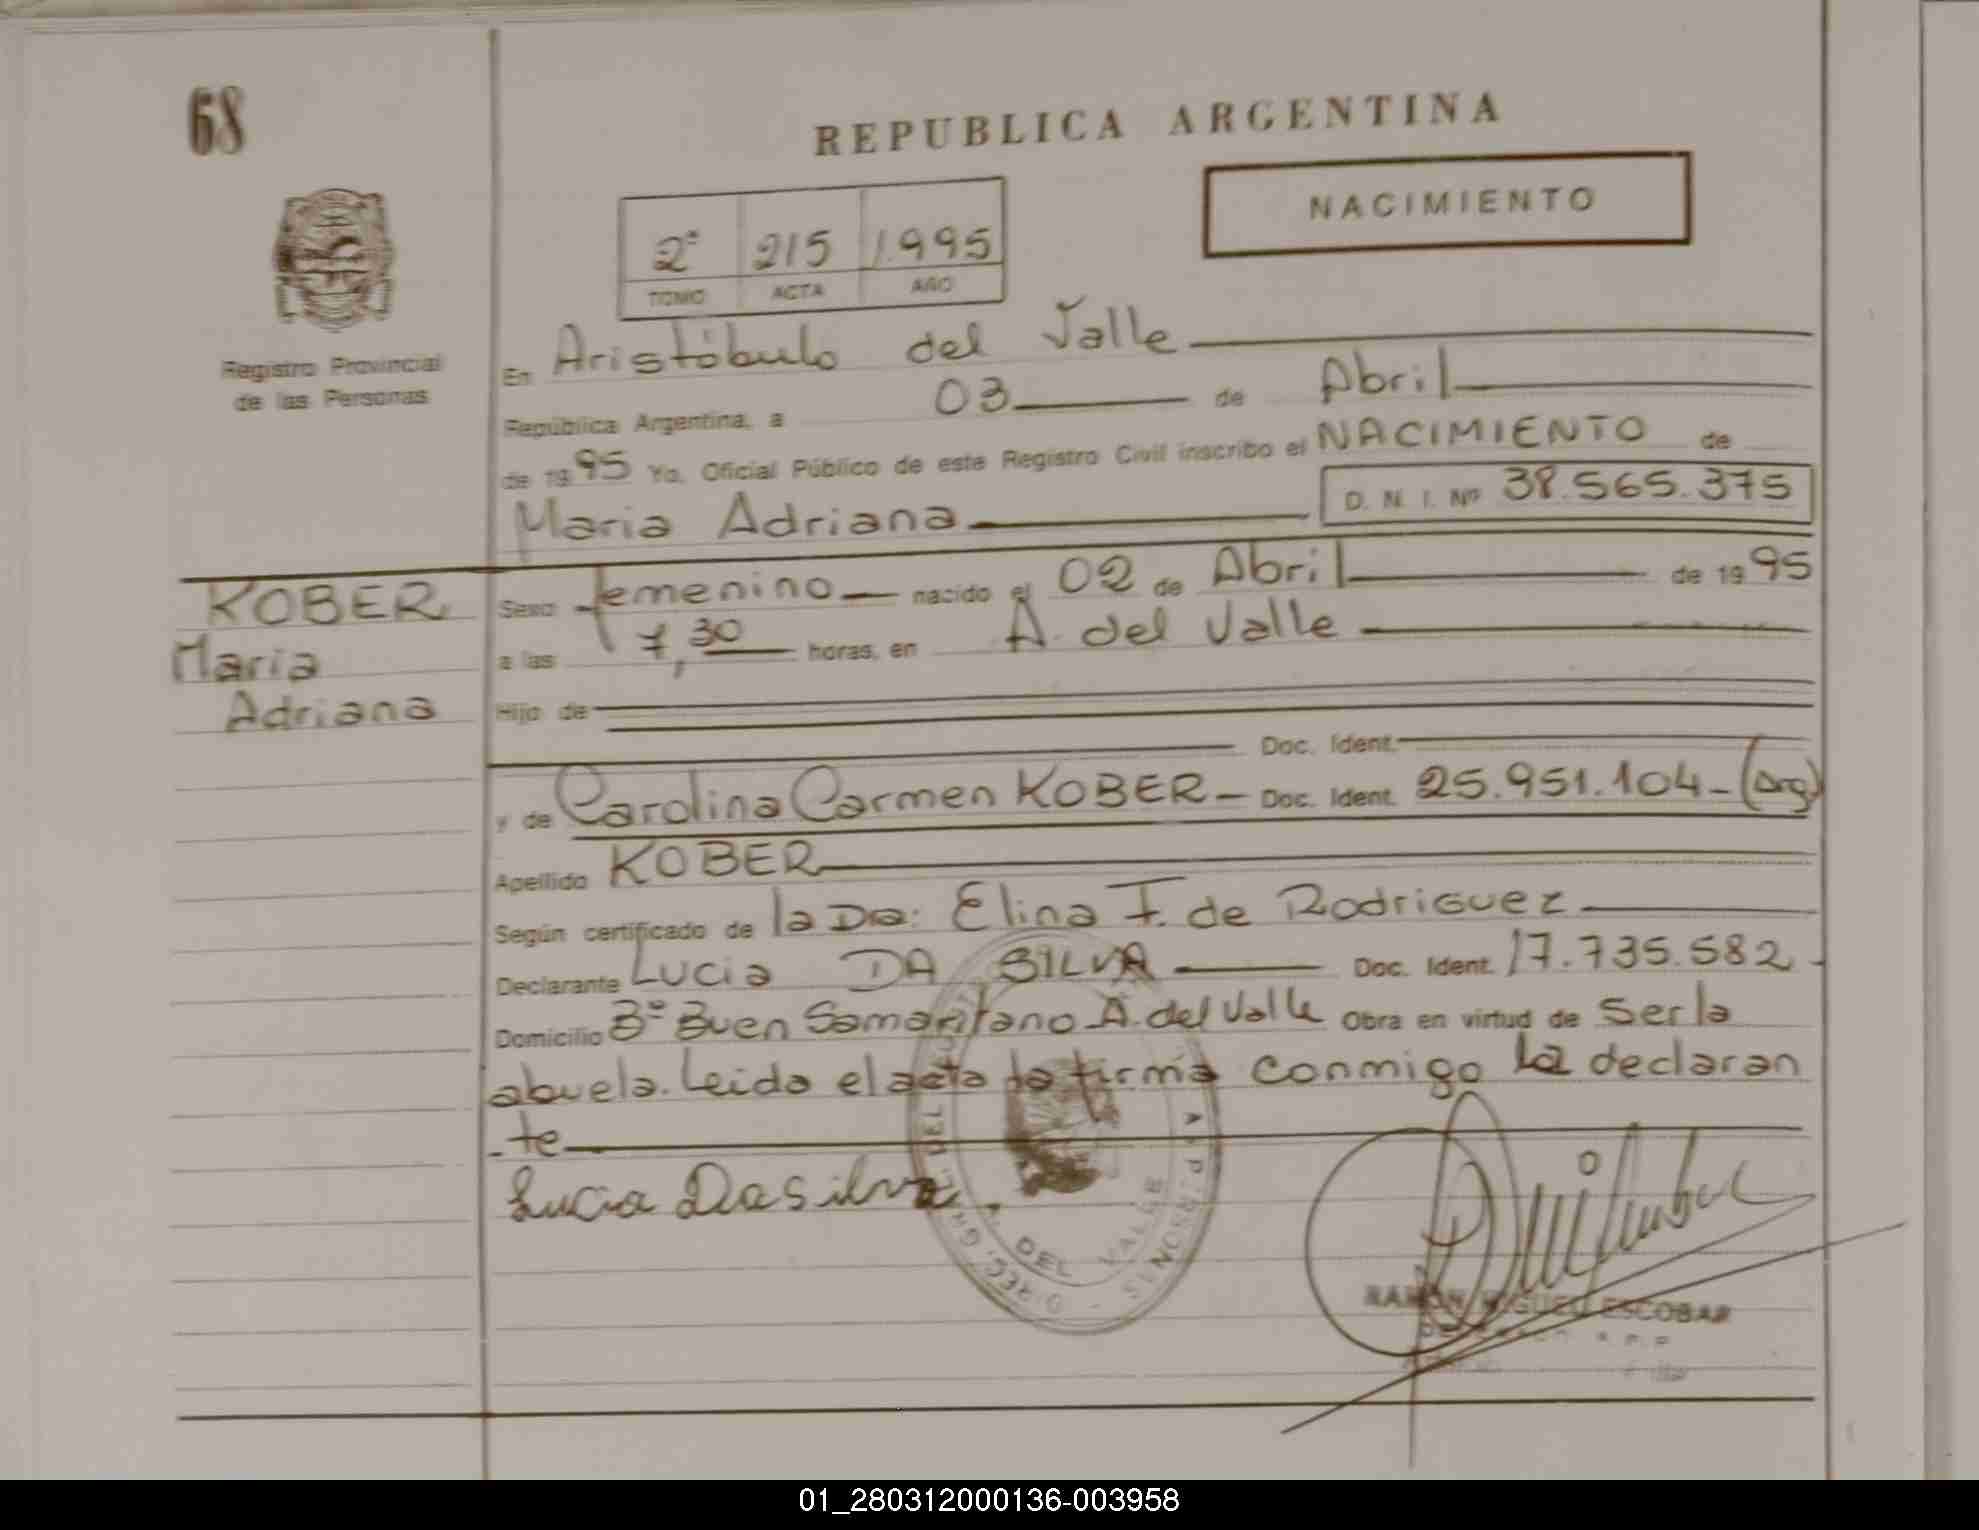 68
REPUBLICA ARGENTINA
NACIMIENTO
2º 215 1.995
TOMO ACTA AÑO
Registro Provincial
de las Personas
En Aristóbulo del Valle
República Argentina, a 03 de Abril
de 1995 Yo, Oficial Público de este Registro Civil inscribo el NACIMIENTO de
Maria Adriana D. N. I. Nº 38.565.375
KOBER
Maria
Adriana
Sexo femenino nacido el 02 de Abril de 1995
a las 7,30 horas, en A. del Valle
Hijo de
Doc. Ident.
y de Carolina Carmen KOBER - Doc. Ident. 25.951.104 - (Arg)
Apellido KOBER
Según certificado de la Dra: Elina F. de Rodriguez
Declarante Lucia DA SILVA Doc. Ident. 17.735.582 -
Domicilio Bº Buen Samaritano A. del Valle Obra en virtud de ser la
abuela. Leida el acta la firma conmigo la declaran
-te
Lucia Dasilva.
DEL VALLE
RAMON MIGUEL ESCOBAR
01_280312000136-003958